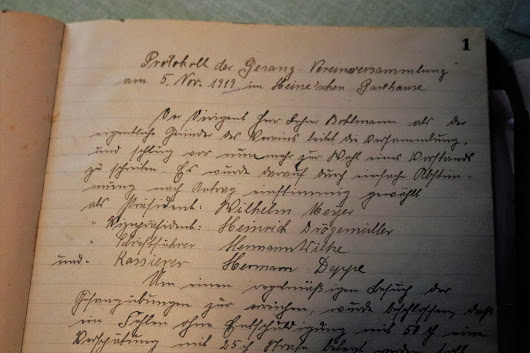 1
Protokoll der Gesang-Vereinsversammlung
am 5. Nov. 1919 im Heine'schen Gasthause
Der Dirigent Herr Lehrer Bollmann als der
eigentliche Gründer des Vereins leitet die Versammlung,
und schlug vor nun mehr zur Wahl eines Vorstands
zu schreiten. Es wurde darauf durch einfach Abstim-
mung nach Antrag einstimmig gewählt
als Präsident: Wilhelm Meyer
" Vizepräsident: Heinrich Drögemüller
" Schriftführer Hermann Wilke
und " Kassierer Hermann Deppe
Um einen regelmäßigen Besuch der
Gesangübungen zu erreichen, wurde beschlossen, daß
ein Fehlen ohne Entschuldigung mit 50 ₰ eine
Verspätung mit 25 ₰ Strafe belegt werden